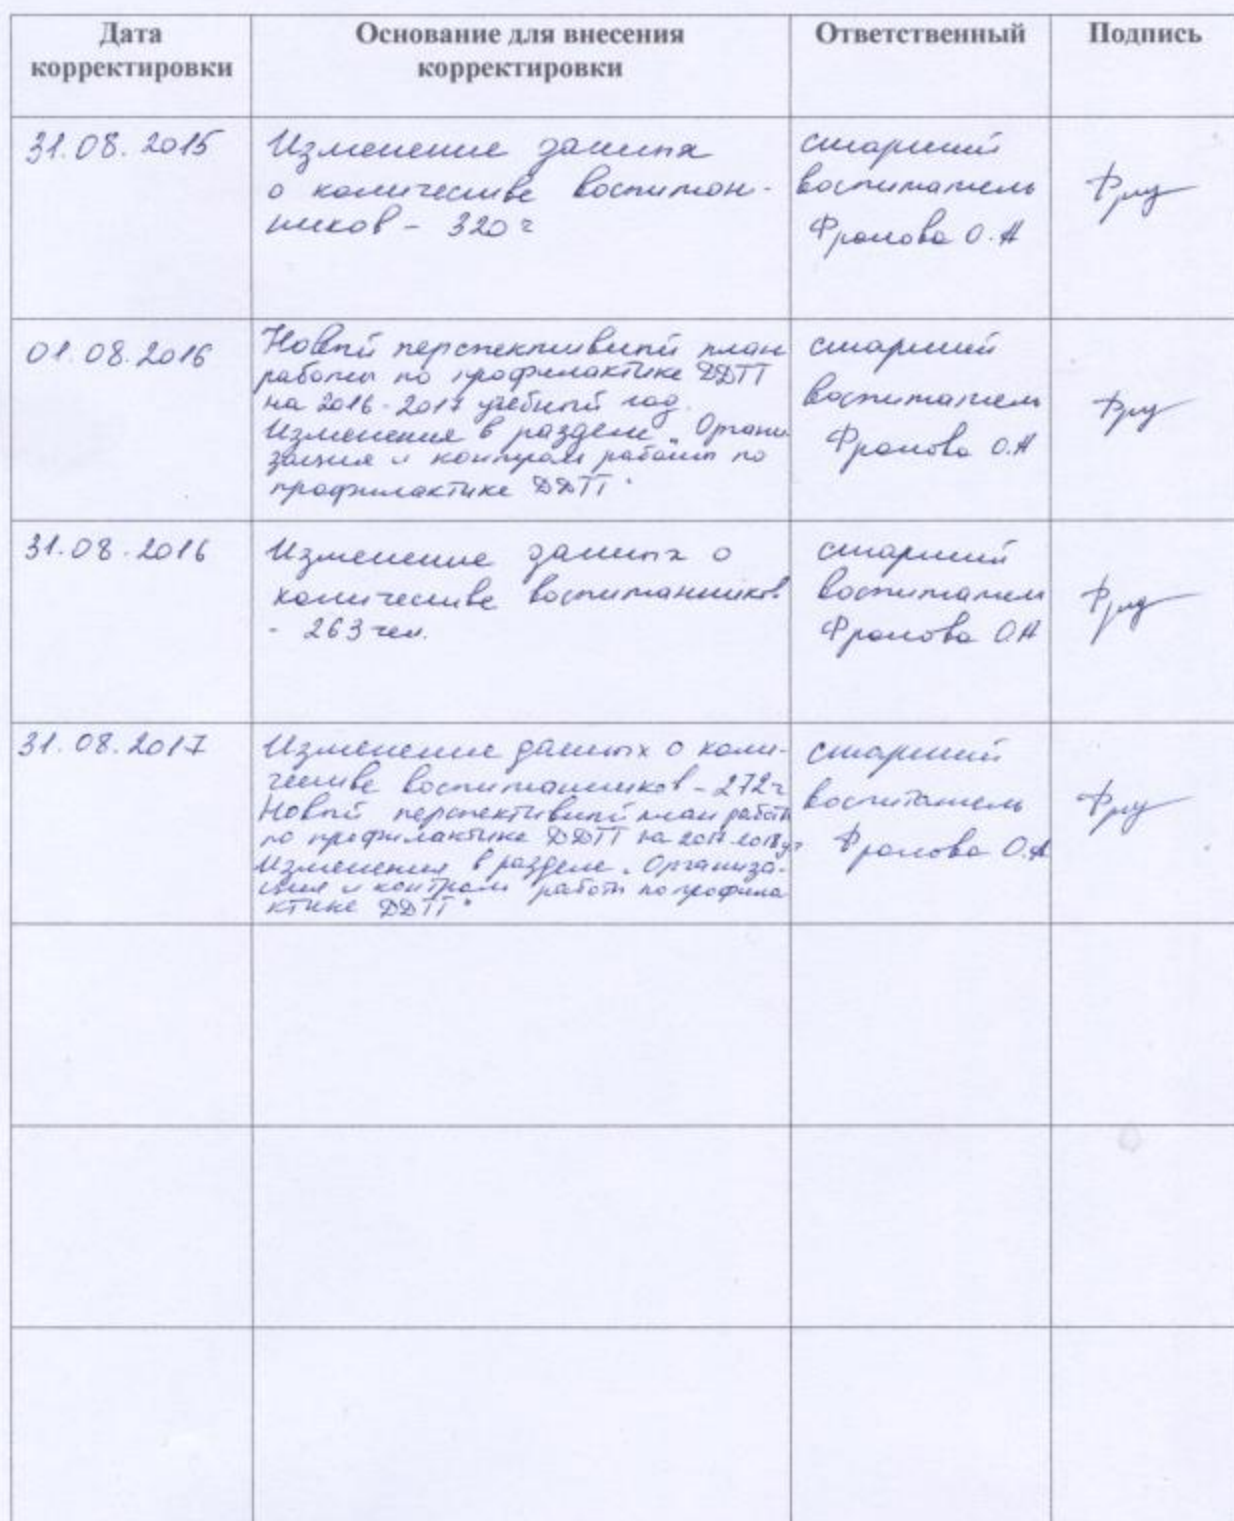 Дата
корректировки
Основание для внесения
корректировки
Ответственный
Подпись
31.08.2015
Изменение данных
о количестве воспитан-
ников - 320 ч
старший
воспитатель
Фролова О.А
01.08.2016
Новый перспективный план
работы по профилактике ДДТТ
на 2016-2017 учебный год.
Изменения в разделе „Органи
зация и контроль работы по
профилактике ДДТТ"
старший
воспитатель
Фролова О.А
31.08.2016
Изменение данных о
количестве воспитанников
- 263 чел.
старший
воспитатель
Фролова О.А
31.08.2017
Изменение данных о коли-
честве воспитанников - 272 ч
Новый перспективный план работы
по профилактике ДДТТ на 2017-2018 у г
Изменения в разделе „Организа-
ция и контроль работы по профила
ктике ДДТТ"
старший
воспитатель
Фролова О.А